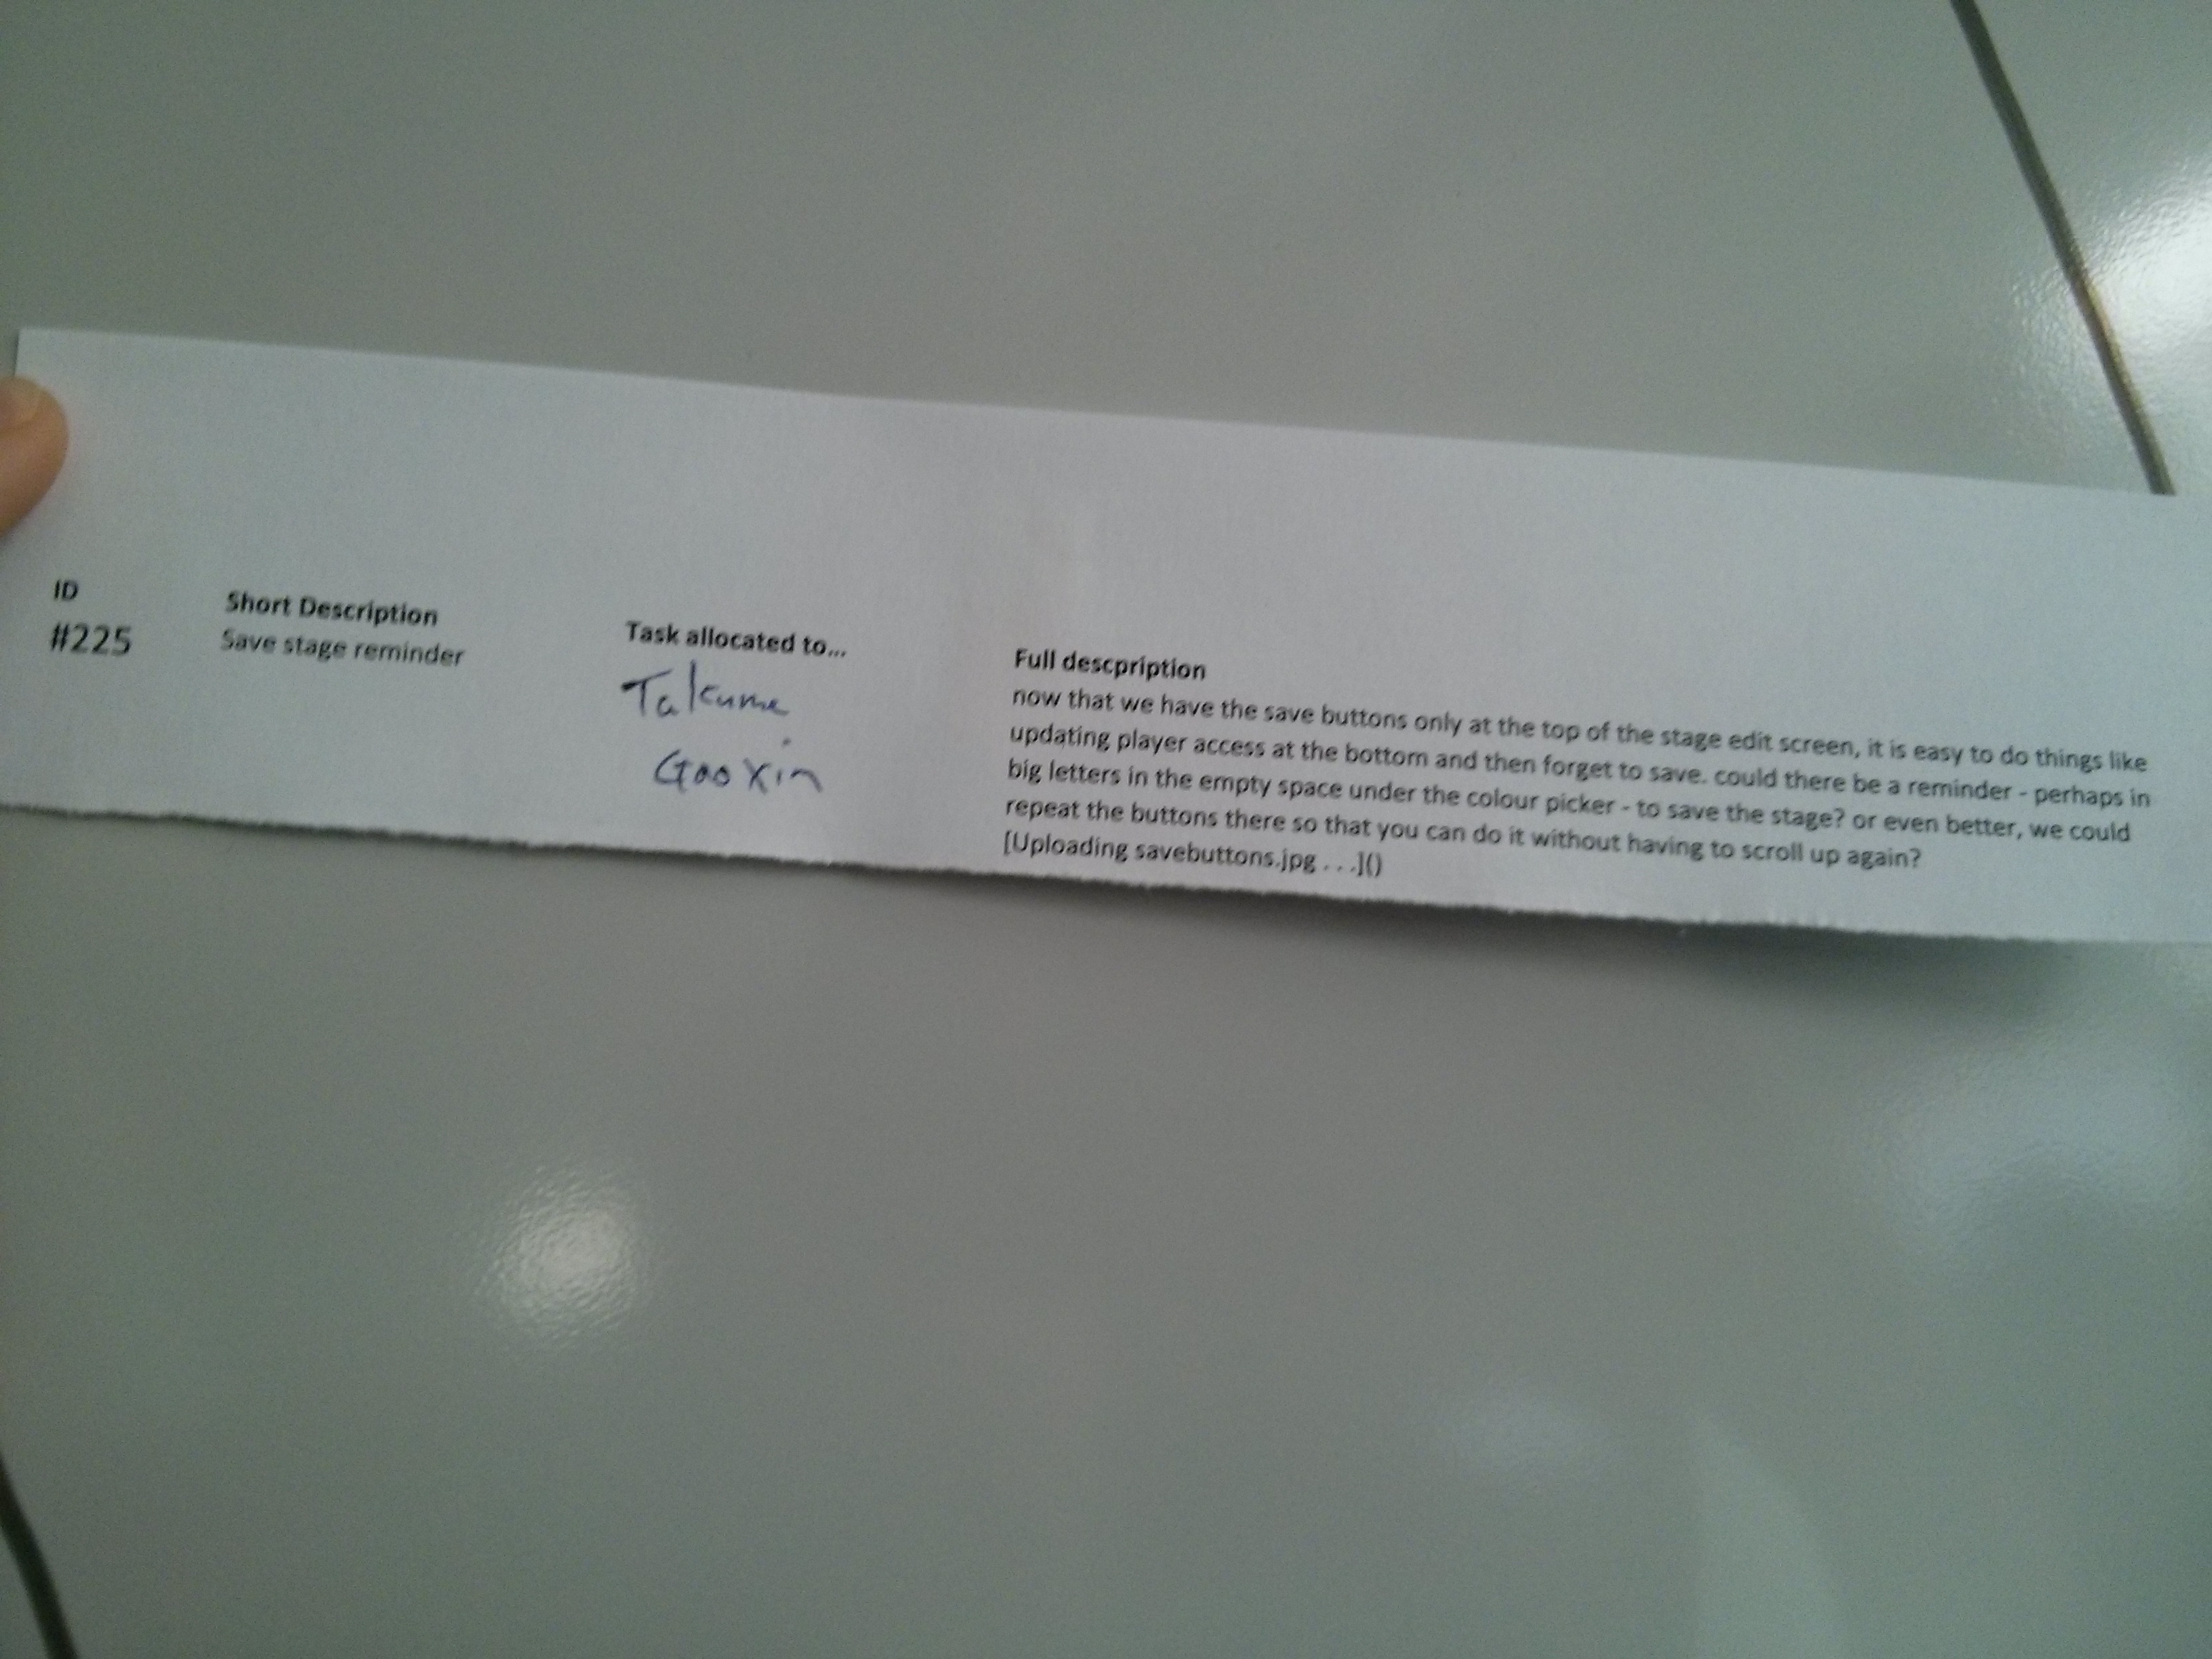 ID
#225
Short Description
Save stage reminder
Task allocated to...
Takuma
Gao Xin
Full descpription
now that we have the save buttons only at the top of the stage edit screen, it is easy to do things like
updating player access at the bottom and then forget to save. could there be a reminder - perhaps in
big letters in the empty space under the colour picker - to save the stage? or even better, we could
repeat the buttons there so that you can do it without having to scroll up again?
[Uploading savebuttons.jpg . . .]()